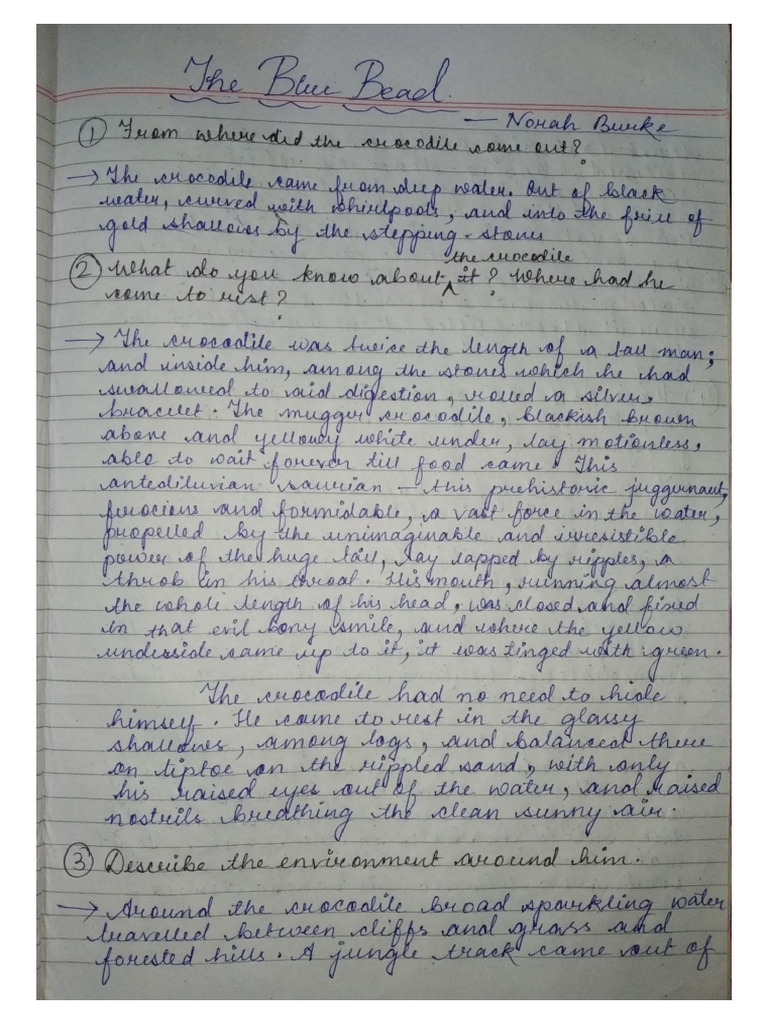 The Blue Bead.
— Norah Burke
① From where did the crocodile come out?
→ The crocodile came from deep water. Out of black
water, curved with whirlpools, and into the frill of
gold shallows by the stepping-stones
the crocodile
② What do you know about ^ it? Where had he
come to rest?
→ The crocodile was twice the length of a tall man;
and inside him, among the stones which he had
swallowed to aid digestion, rolled a silver
bracelet. The mugger crocodile, blackish brown
above and yellowy white under, lay motionless,
able to wait forever till food came. This
antediluvian saurian — this prehistoric juggernaut,
ferocious and formidable, a vast force in the water,
propelled by the unimaginable and irresistible
power of the huge tail, lay lapped by ripples, a
throb in his throat. His mouth, running almost
the whole length of his head, was closed and fixed
in that evil bony smile, and where the yellow
underside came up to it, it was tinged with green.
The crocodile had no need to hide
himself. He came to rest in the glassy
shallows, among logs, and balanced there
on tiptoe on the rippled sand, with only
his raised eyes out of the water, and raised
nostrils breathing the clean sunny air.
③ Describe the environment around him.
→ Around the crocodile broad sparkling water
travelled between cliffs and grass and
forested hills. A jungle track came out of